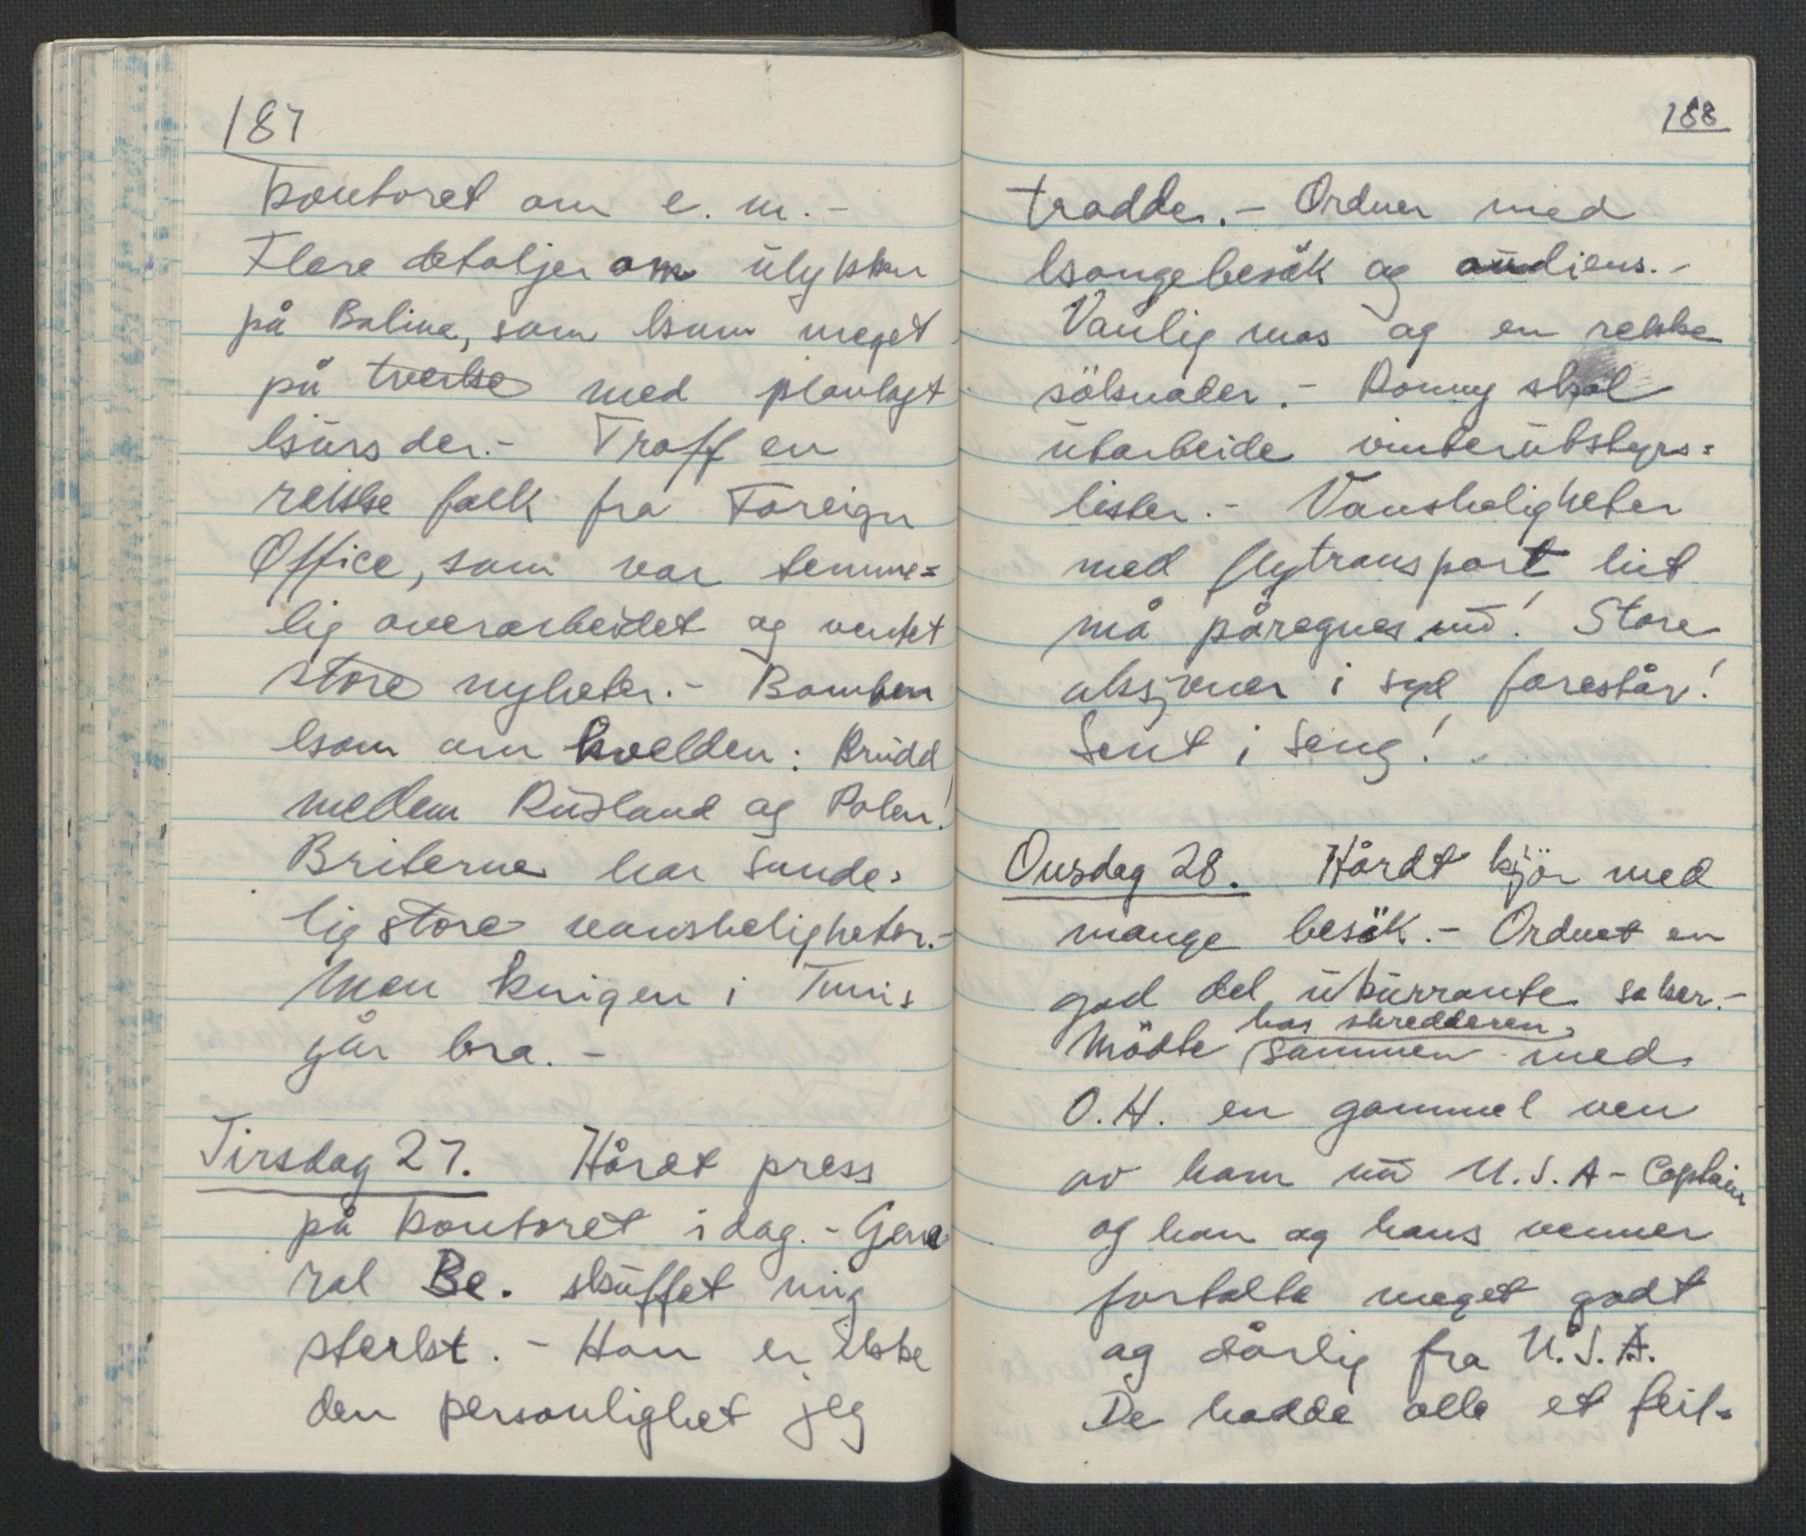 187
kontoret om e. m. -
Flere detaljer om ulykken
på Balina, som kom meget
på tverke med planlagt
kurs der. - Traff en
rekke folk fra Foreign
Office, som var temme=
lig overarbeidet og ventet
store nyheter. - Bomben
kom om kvelden: Brudd
mellem Rusland og Polen!
Briterne har sande=
lig store vanskeligheter. -
Men krigen i Tunis
går bra. -
Tirsdag 27. Håret press
på kontoret idag. - Gene-
ral Be. skuffet mig
sterkt. - Han er ikke
den personlighet jeg
188
trodde. - Ordner med
kongebesök og audiens. -
Vanlig mas og en rekke
söknader. - Ronny skal
utarbeide vinterutstyrs=
lister. - Vanskeligheter
med flytransport hit
må påregnes nu! Store
aksjoner i syd forestår!
Sent i seng!
Onsdag 28. Hårdt kjör med
mange besök. - Ordnet en
god del ukurrante saker. -
hos skredderen
Mödte sammen med
O.H. en gammel ven
av ham nu U.S.A - Captain
og han og hans venner
fortalte meget godt
og dårlig fra U.S.A.
De hadde alle et feil-